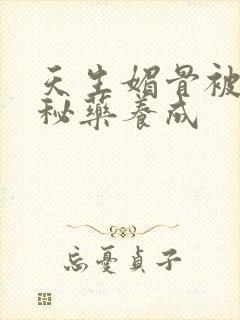 天生媚骨被
秘藥養成
忘憂貞子